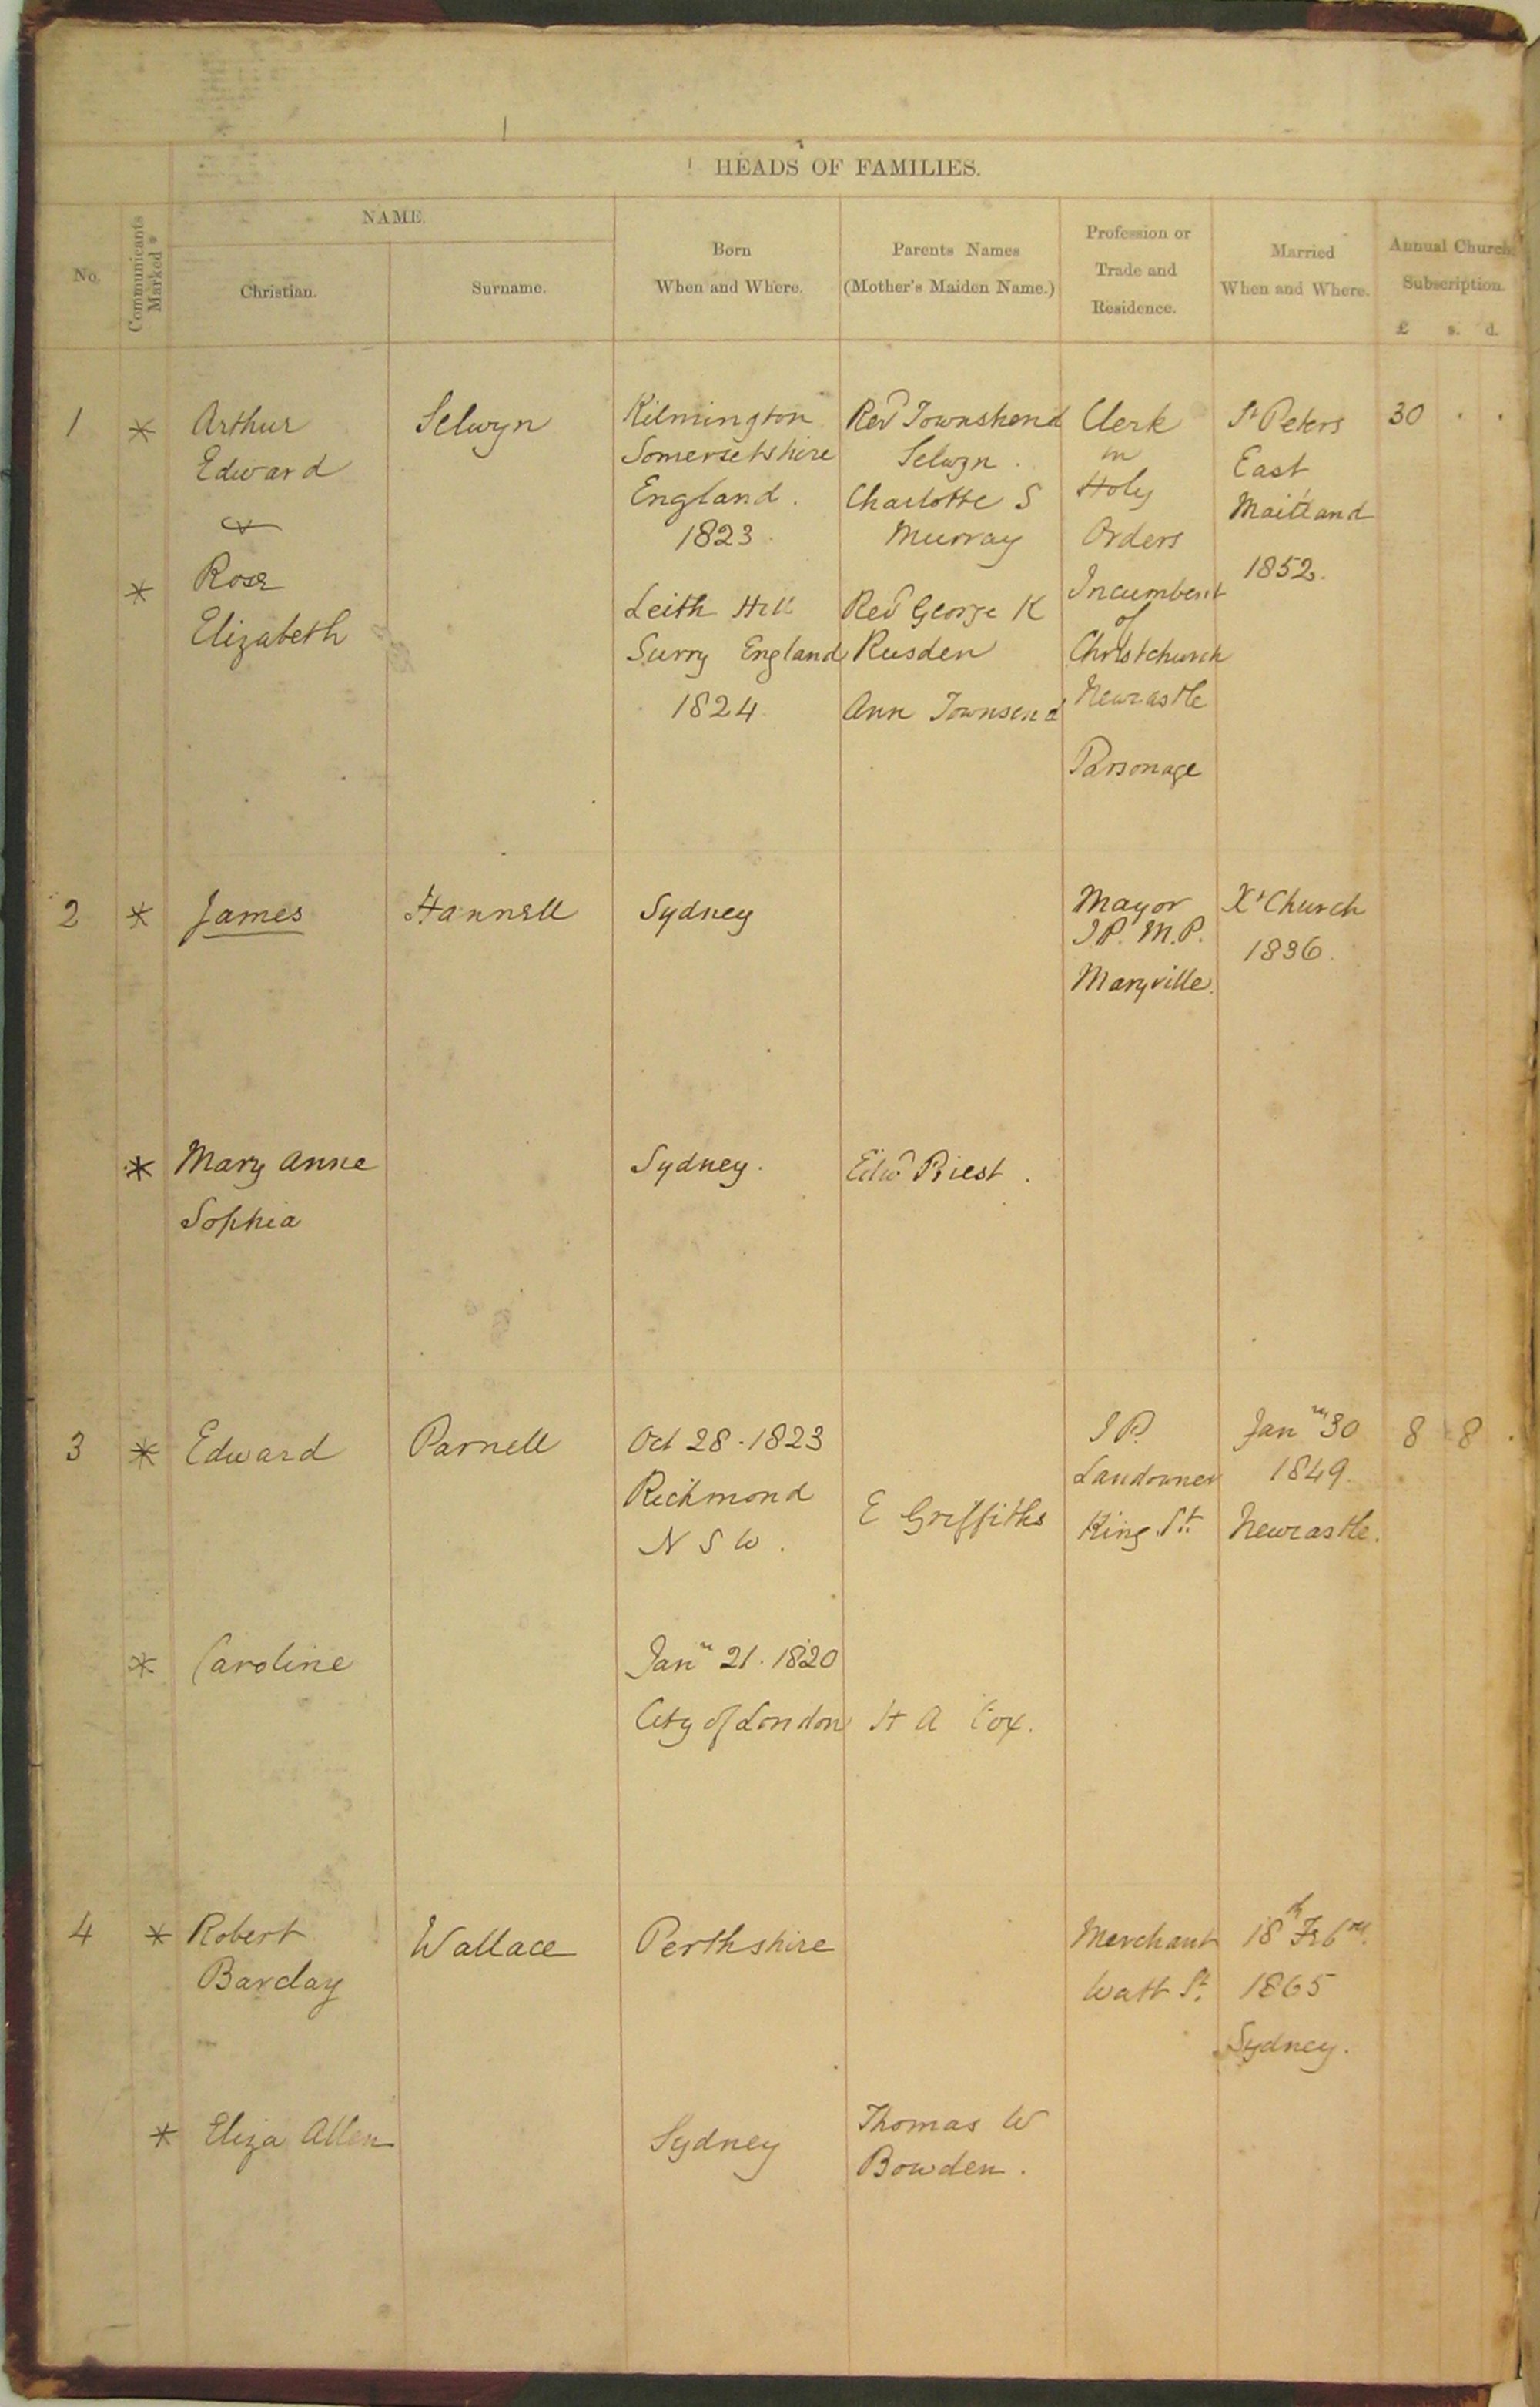 HEADS OF FAMILIES.
No.
Communicants
Marked *
NAME.
Christian.
Surname.
Born
When and Where.
Parents Names
(Mother's Maiden Name.)
Profession or
Trade and
Residence.
Married
When and Where.
Annual Church
Subscription.
£ s. d.
1
*
Arthur
Edward
&
*
Rose
Elizabeth
Selwyn
Kilmington
Somersetshire
England.
1823.
Leith Hill
Surry England
1824.
Revd Townshend
Selwyn.
Charlotte S
Murray
Revd George K
Rusden
Ann Townsend
Clerk
in
Holy
Orders
Incumbent
of
Christchurch
Newcastle
Parsonage
St Peters
East
Maitland
1852.
30 . .
2
*
James
Hannell
Sydney
Mayor
J.P. M.P.
Maryville.
Xt Church
1836.
*
Mary Anne
Sophia
Sydney.
Edwd Priest.
3
*
Edward
Parnell
Oct 28. 1823
Richmond
N S W.
E Griffiths
J P.
Landowner
King St.
Jany 30
1849.
Newcastle.
8 8 .
*
Caroline
Jany 21. 1820
City of London
H A Cox.
4
*
Robert
Barclay
Wallace
Perthshire
Merchant
Watt St.
18th Feby.
1865
Sydney.
*
Eliza Allen
Sydney
Thomas W
Bowden.